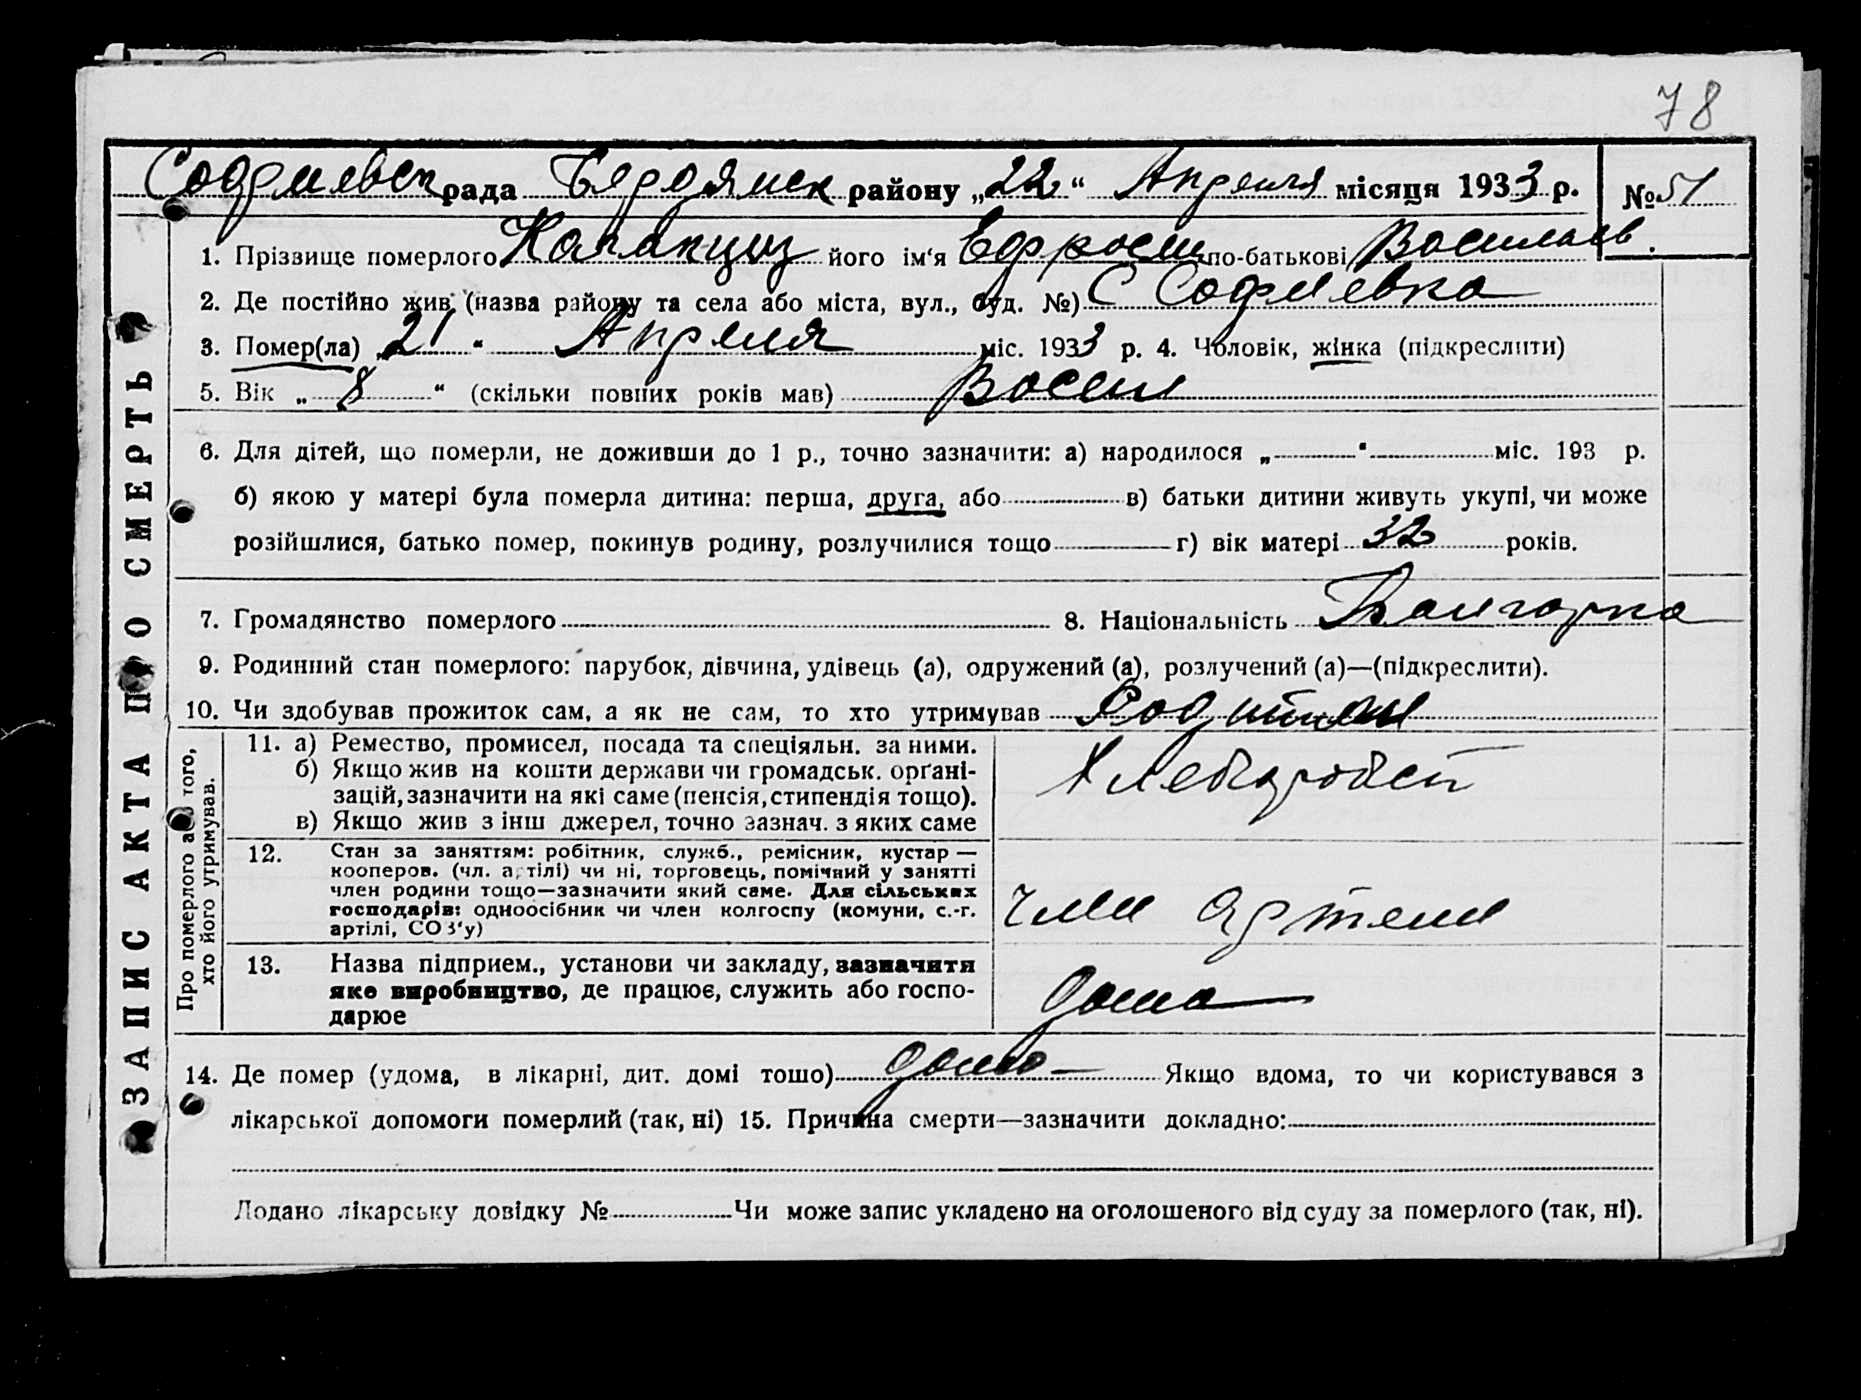 78
Софиевск рада Бердянск району „22“ Апреля місяця 1933 р. №51
1. Прізвище померлого його ім'я Ефросин по-батькові Василиев.
2. Де постійно жив (назва району та села або міста, вул., буд. №) С Софиевка
3. Помер(ла) „21“ Апреля міс. 1933 р. 4. Чоловік, жінка (підкреслити)
5. Вік „8“ (скільки повних років мав) Восем
6. Для дітей, що померли, не доживши до 1 р., точно зазначити: а) народилося „ “ міс. 193 р.
б) якою у матері була померла дитина: перша, друга, або в) батьки дитини живуть укупі, чи може
розійшлися, батько помер, покинув родину, розлучилися тощо г) вік матері 32 років.
7. Громадянство померлого 8. Національність Болгарка
9. Родинний стан померлого: парубок, дівчина, удівець (а), одружений (а), розлучений (а)—(підкреслити).
10. Чи здобував прожиток сам, а як не сам, то хто утримував Родители
ЗАПИС АКТА ПРО СМЕРТЬ
Про померлого або того,
хто його утримував.
11. а) Ремество, промисел, посада та спеціяльн. за ними.
б) Якщо жив на кошти держави чи громадськ. орґані-
зацій, зазначити на які саме (пенсія, стипендія тощо).
в) Якщо жив з інш джерел, точно зазнач. з яких саме
Хлебороб
12. Стан за заняттям: робітник, служб., ремісник, кустар —
кооперов. (чл. артілі) чи ні, торговець, помічний у занятті
член родини тощо—зазначити який саме. Для сільських
господарів: одноосібник чи член колгоспу (комуни, с.-г.
артілі, СОЗ'у)
член Артели
13. Назва підприєм., установи чи закладу, зазначити
яке виробництво, де працює, служить або госпо-
дарює
дома
14. Де помер (удома, в лікарні, дит. домі тошо) дома Якщо вдома, то чи користувався з
лікарської допомоги померлий (так, ні) 15. Причина смерти—зазначити докладно:
Додано лікарську довідку № Чи може запис укладено на оголошеного від суду за померлого (так, ні).